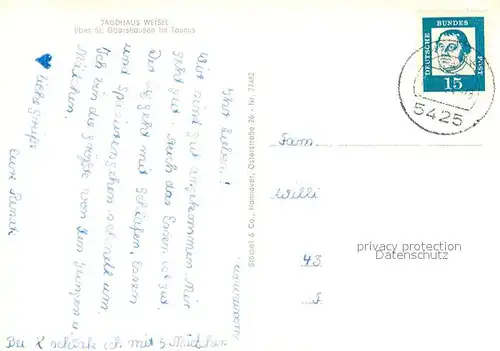 JAGDHAUS WEISEL
über St. Goarshausen im Taunus
Ihr Lieben!
Wir sind gut angekommen. Mir
geht gut. Auch das Essen ist gut.
Der Tag geht mit schlafen, Essen
und Spazierengehen schnell um.
Ich bin die größte von den Jungen u.
Mädchen.
liebe Grüße
Eure
Bei X schlafe ich mit 5 Mädchen
zusammen
Stössel & Co., Hannover, Osterstraße 26 · Nr. 77482
DEUTSCHE BUNDES POST
15
5425
Fam.
Willi
43
privacy protection
Datenschutz